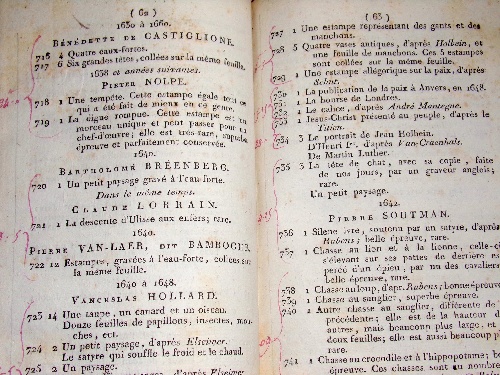 ( 62 )
1630 à 1660.
BÉNÉDETTE DE CASTIGLIONE.
716 4 Quatre eaux-fortes.
717 6 Six grandes têtes, collées sur la même feuille.
1638 et années suivantes.
PIETER NOLPE.
718 1 Une tempête. Cette estampe égale tout ce
qui a été fait de mieux en ce genre.
719 1 La digue rompue. Cette estampe est un
morceau unique et peut passer pour un
chef-d'œuvre; elle est très-rare, superbe
épreuve et parfaitement conservée.
1640.
BARTHOLOMÉ BRÉENBERG.
720 1 Un petit paysage gravé à l'eau-forte.
Dans le même temps.
CLAUDE LORRAIN.
721 1 La descente d'Ulisse aux enfers; rare.
1640.
PIERRE VAN-LAER, DIT BAMBOCHE.
722 12 Estampes, gravées à l'eau-forte, collées sur
la même feuille.
1640 à 1648.
VANCESLAS HOLLARD.
723 14 Une taupe, un canard et un oiseau.
Douze feuilles de papillons, insectes, mouches,
ches, ect.
724 2 Un petit paysage, d'après Elseimer.
Le satyre qui souffle le froid et le chaud.
725 2 Un paysage.
( 63 )
727 1 Une estampe représentant des gants et des
manchons.
728 5 Quatre vases antiques, d'après Holbein, et
une feuille de manchons. Ces 5 estampes
sont collées sur la même feuille.
729 1 Une estampe allégorique sur la paix, d'après
Schut.
730 1 La publication de la paix à Anvers, en 1648.
731 1 La bourse de Londres.
1 Le calice, d'après André Montegne.
1 Jesus-Christ présenté au peuple, d'après le
Titien.
3 Le portrait de Jean Holbein.
De Martin Luther.
735 3 La tête de chat, avec sa copie, faite
de nos jours, par un graveur anglais;
rare.
Un petit paysage.
1642.
PIERRE SOUTMAN.
736 1 Silene ivre, soutenu par un satyre, d'après
Rubens; belle épreuve, rare.
737 1 Chasse au lion et à la lionne, celle-ci
s'élevant sur ses pattes de derrière est
percé d'un épieu, par un des cavaliers
belle épreuve, rare.
738 1 Chasse au loup, d'apr. Rubens; bonne épreuve
739 1 Chasse au sanglier, superbe épreuve.
740 1 Autre chasse au sanglier, différente de
précédente; elle est de la hauteur d
autres, mais beaucoup plus large, et
deux feuilles; elle est aussi beaucoup plus
rare.
741 1 Chasse au crocodile et à l'hippopotame; b
épreuve. Ces chasses sont au nombre